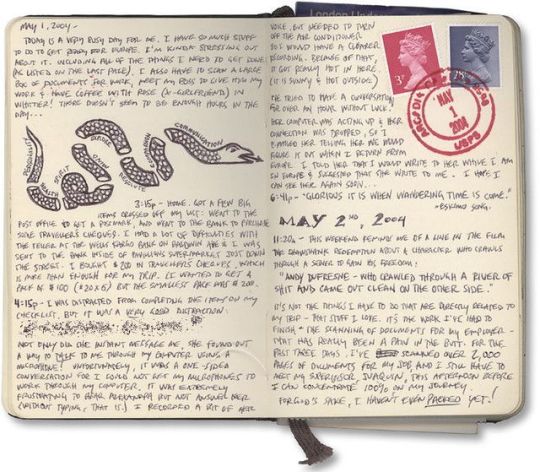 MAY 1, 2004 -
TODAY IS A VERY BUSY DAY FOR ME. I HAVE SO MUCH STUFF
TO DO TO GET READY FOR EUROPE. I'M KINDA STRESSING OUT
ABOUT IT. INCLUDING ALL OF THE THINGS I NEED TO GET DONE
(AS LISTED ON THE LAST PAGE), I ALSO HAVE TO SCAN A LARGE
BOX OF DOCUMENTS FOR WORK, MEET MY BOSS TO GIVE HIM MY
WORK & HAVE COFFEE WITH ROSE (X-GIRLFRIEND) IN
WHITTIER! THERE DOESN'T SEEM TO BE ENOUGH HOURS IN THE
DAY...
COMMUNICATION
3:15P - HOME. GOT A FEW BIG
ITEMS CROSSED OFF MY LIST. WENT TO THE
POST OFFICE TO GET A POSTMARK, AND WENT TO THE BANK TO PURCHASE
SOME TRAVELLER'S CHEQUES. I HAD A LOT OF DIFFICULTIES WITH
THE TELLER AT THE WELLS FARGO BANK ON BALDWIN AVE & I WAS
SENT TO THE BANK INSIDE OF PAVILIONS SUPERMARKET JUST DOWN
THE STREET. I BOUGHT $200 IN TRAVELLER'S CHEQUES, WHICH
IS MORE THAN ENOUGH FOR MY TRIP. I WANTED TO GET A
PACK OF $100 ($20x5) BUT THE SMALLEST PACK WAS $200.
4:15P - I WAS DISTRACTED FROM COMPLETING THE ITEMS ON MY
CHECKLIST, BUT IT WAS A VERY GOOD DISTRACTION:
NOT ONLY DID SHE INSTANT MESSAGE ME, SHE FOUND OUT
A WAY TO TALK TO ME THROUGH MY COMPUTER USING A
MICROPHONE! UNFORTUNATELY, IT WAS A ONE-SIDED
CONVERSATION FOR I COULD NOT GET MY MICROPHONES TO
WORK THROUGH MY COMPUTER. IT WAS EXTREMELY
FRUSTRATING TO HEAR ALEXANDRA BUT NOT ANSWER HER
(WITHOUT TYPING, THAT IS.) I RECORDED A BIT OF HER
VOICE, BUT NEEDED TO TURN
OFF THE AIR CONDITIONER
SO I WOULD HAVE A CLEARER
RECORDING. BECAUSE OF THAT,
IT GOT REALLY HOT IN HERE.
(IT IS SUNNY & HOT OUTSIDE)
WE TRIED TO MAKE A CONVERSATION
FOR OVER AN HOUR WITHOUT LUCK.
HER COMPUTER WAS ACTING UP & HER
CONNECTION WAS DROPPED, SO I
E-MAILED HER TELLING HER WE WOULD
FIGURE IT OUT WHEN I RETURN FROM
EUROPE. I TOLD HER THAT I WOULD WRITE TO HER WHILE I AM
IN EUROPE & SUGGESTED THAT SHE WRITE TO ME. I HOPE I
CAN SEE HER AGAIN SOON...
6:41P - "GLORIOUS IT IS WHEN WANDERING TIME IS COME."
- ESKIMO SONG.
MAY 2ND, 2004
11:20A - THIS WEEKEND REMINDS ME OF A LINE IN THE FILM
THE SHAWSHANK REDEMPTION ABOUT A CHARACTER WHO CRAWLS
THROUGH A SEWER TO GAIN HIS FREEDOM:
"ANDY DUFRESNE - WHO CRAWLED THROUGH A RIVER OF
SHIT AND CAME OUT CLEAN ON THE OTHER SIDE."
IT'S NOT THE THINGS I HAVE TO DO THAT ARE DIRECTLY RELATED TO
MY TRIP - THAT STUFF I LOVE. IT'S THE WORK I'VE HAD TO
FINISH - THE SCANNING OF DOCUMENTS FOR MY EMPLOYER -
THAT HAS REALLY BEEN A PAIN IN THE BUTT. FOR THE
PAST THREE DAYS, I'VE SCANNED OVER 2,000
PAGES OF DOCUMENTS FOR MY JOB AND I STILL HAVE TO
MEET MY SUPERVISOR, JOAQUIN, THIS AFTERNOON BEFORE
I CAN CONCENTRATE 100% ON MY JOURNEY.
FOR GOD'S SAKE, I HAVEN'T EVEN PACKED YET!
London
MAY
1
2004
USPS